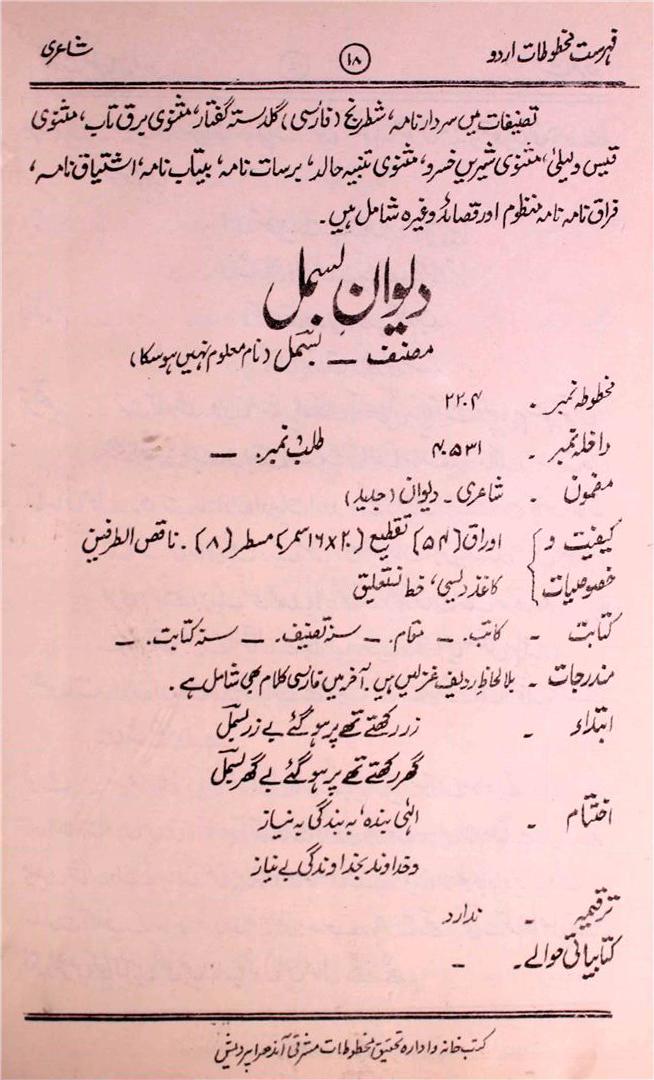 فہرست مخطوطات اردو ۱۸ شاعری
تصنیفات میں سردار نامہ، شطرنج (فارسی) گلدستہ گفتار، مثنوی برق تاب، مثنوی
قیس و لیلیٰ، مثنوی شیریں خسرو، مثنوی تنبیہ حالد، برسات نامہ، بیتاب نامہ، اشتیاق نامہ،
فراق نامہ نامہ منظوم اور قصائد وغیرہ شامل ہیں۔
دیوانِ بسمل
مصنف — بسمل (نام معلوم نہیں ہوسکا)
مخطوطہ نمبر - ۲۲۰۴
داخلہ نمبر - ۴۰۵۳۱ طلب نمبر - —
مضمون - شاعری - دیوان (جدید)
کیفیت و اوراق (۵۴) تقطیع (۲۰×۱۶ سمر) مسطر (۸) - ناقص الطرفین
خصوصیات کاغذ دلیسی، خط نستعلیق
کتابت - کاتب - مقام - سنہ تصنیف - — سنہ کتابت - —
مندرجات - بلا لحاظِ ردیف غزلیں ہیں۔ آخر میں فارسی کلام بھی شامل ہے۔
ابتداء - زر رکھتے تھے پر ہو گئے بے زر بسمل
گھر رکھتے تھے پر ہو گئے بے گھر بسمل
اختتام - الٰہی بندہ، بہ بندگی بہ نیاز
و خداوند بخداوندگی بے نیاز
ترقیمہ - ندارد
کتابیاتی حوالے - -
کتب خانہ و ادارہ تحقیق مخطوطات مشرقی آندھرا پردیش